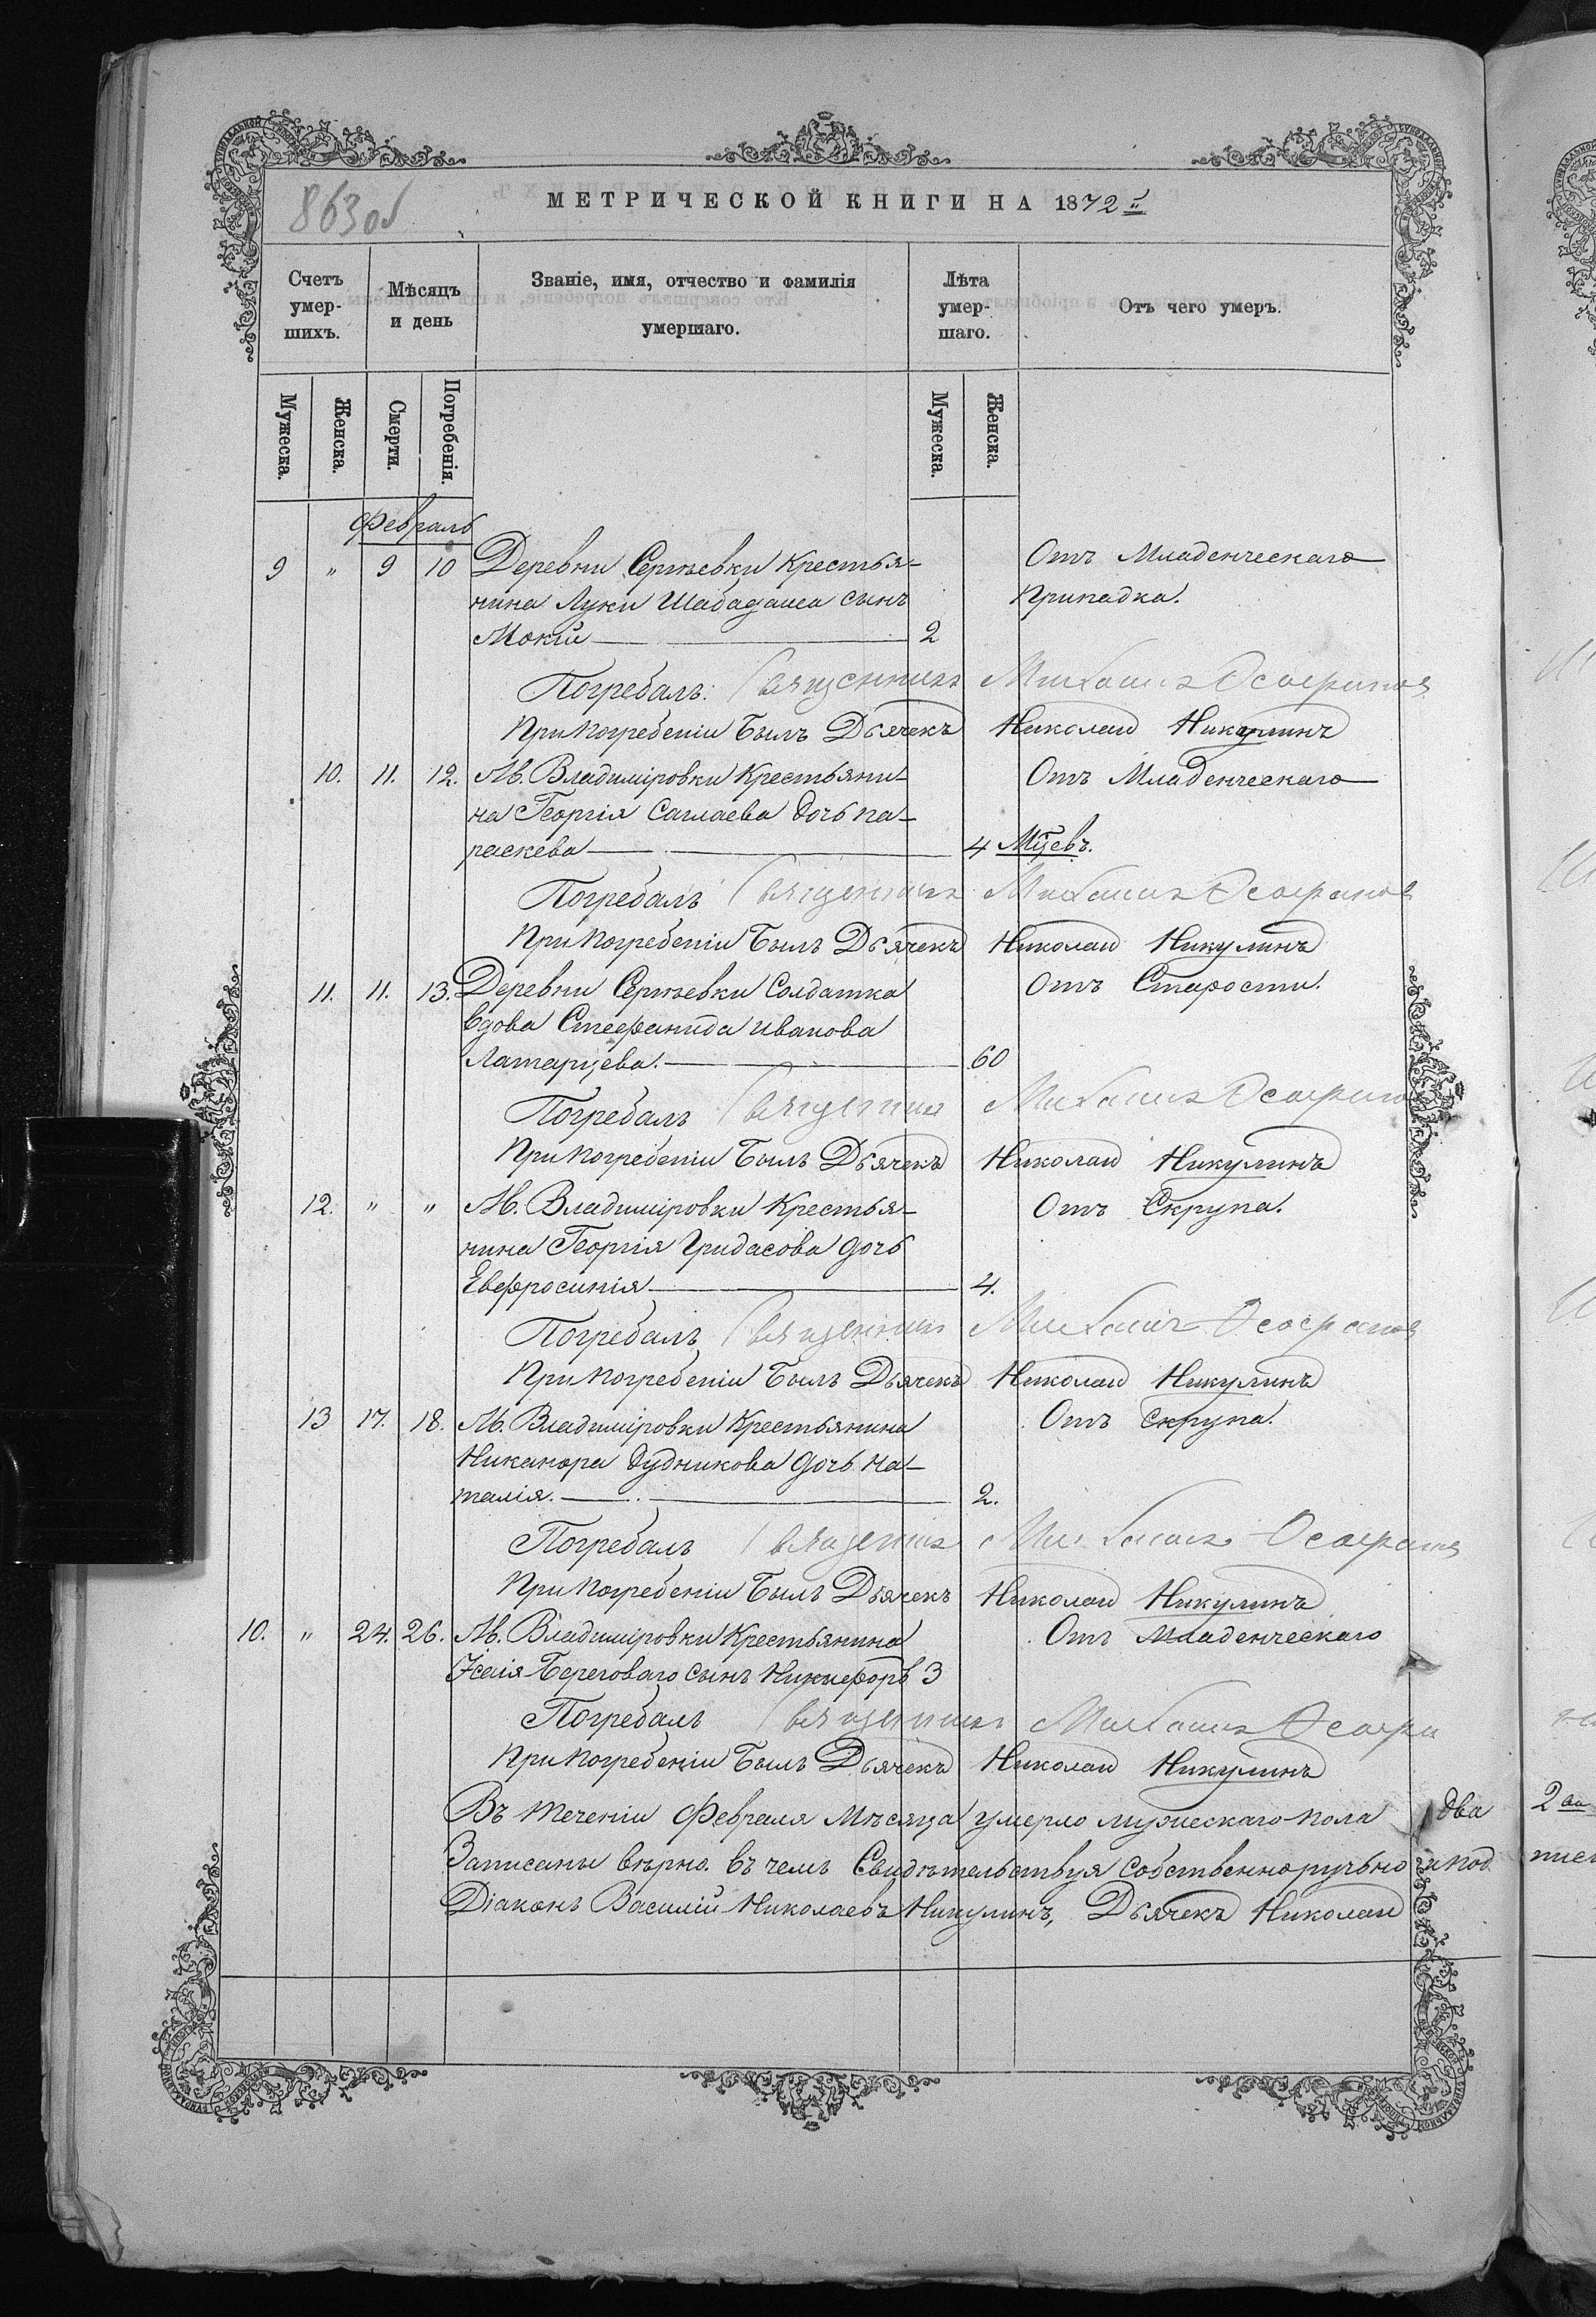 863 об
МЕТРИЧЕСКОЙ КНИГИ НА 1872й
Счетъ умер-шихъ.
Мѣсяцъ и день
Званіе, имя, отчество и фамилія умершаго.
Лѣта умер-шаго.
Отъ чего умеръ.
Мужеска.
Женска.
Смерти.
Погребенія.
Мужеска.
Женска.
Февраль
9 " 9 10 Деревни Сергѣевки Крестья- Отъ Младенческаго
нина Луки Шабадаша сынъ припадка.
Мокій 2
Погребалъ: Священникъ Михаилъ
При погребеніи былъ Дьячекъ Николай Никулинъ
10. 11. 12. М. Владиміровки Крестьяни- Отъ Младенческаго
на Георгія Саглаева дочь Па-
раскева 4 Мцевъ.
Погребалъ Священникъ Михаилъ
При погребеніи былъ Дьячекъ Николай Никулинъ
11. 11. 13. Деревни Сергѣевки Солдатка Отъ Старости.
вдова Стефанида Иванова
Латарцева. 60
Погребалъ Священникъ Михаилъ
При погребеніи былъ Дьячекъ Николай Никулинъ
12. " " М. Владиміровки Крестья- Отъ Скрупа.
нина Георгія Гридасова дочь
Евфросинія 4.
Погребалъ Священникъ Михаилъ
При погребеніи былъ Дьячекъ Николай Никулинъ
13 17. 18. М. Владиміровки Крестьянина Отъ Скрупа.
Никанора Дудникова дочь На-
талія. 2.
Погребалъ Священникъ Михаилъ
При погребеніи былъ Дьячекъ Николай Никулинъ
10. " 24. 26. М. Владиміровки Крестьянина Отъ Младенческаго
Исаія Береговаго сынъ Никифоръ 3
Погребалъ Священникъ Михаилъ
При погребеніи былъ Дьячекъ Николай Никулинъ
Въ теченіи Февраля Мѣсяца умерло мужескаго пола два 2
Записаны вѣрно. въ чемъ Свидѣтельствуя собственноручьно и под
Діаконъ Василій Николаевъ Никулинъ, Дьячекъ Николай